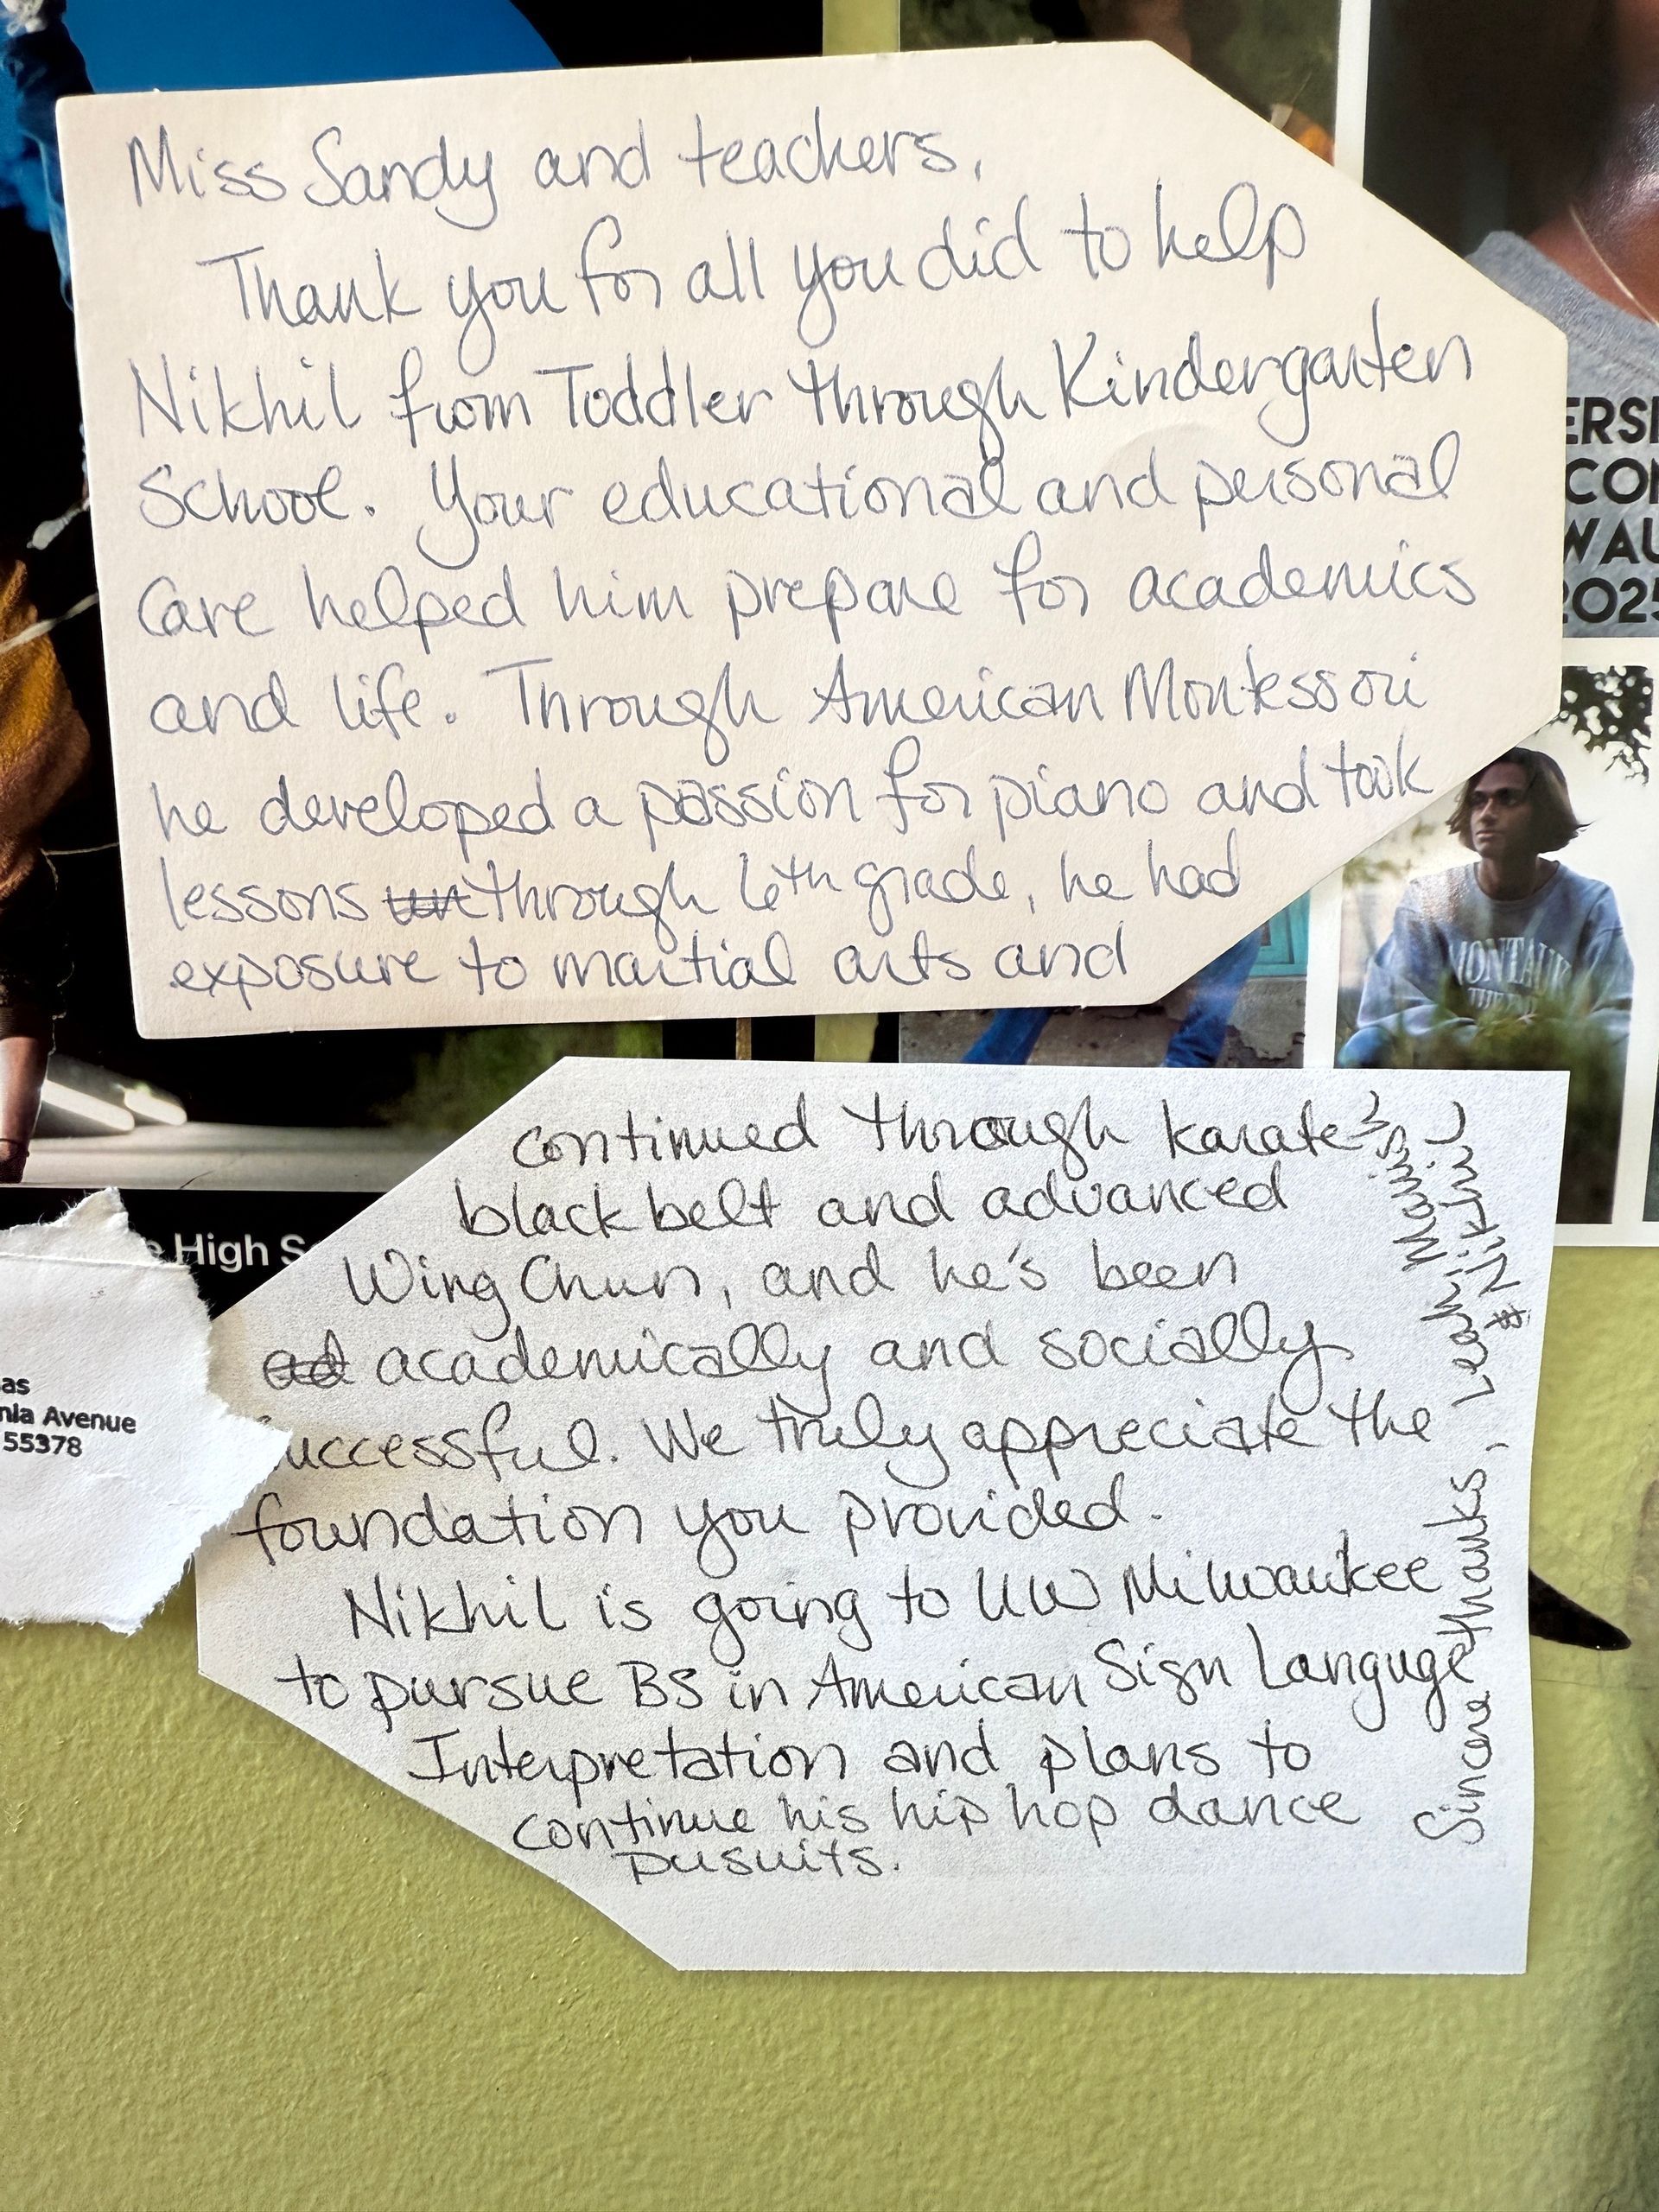 Miss Sandy and teachers,
Thank you for all you did to help
Nikhil from Toddler through Kindergarten
School. Your educational and personal
Care helped him prepare for academics
and life. Through American Montessori
he developed a passion for piano and took
lessons through 6th grade, he had
exposure to martial arts and
ERS
CO
WAU
2025
MONTAUK
continued through karate
black belt and advanced
Wing Chun, and he's been
ad academically and socially
uccessful. We truly appreciate the
foundation you provided.
Nikhil is going to UW Milwaukee
to pursue BS in American Sign Languge
Interpretation and plans to
continue his hip hop dance
pusuits.
Sincere thanks, Leah,
& Nikhil
e High S
as
nia Avenue
55378